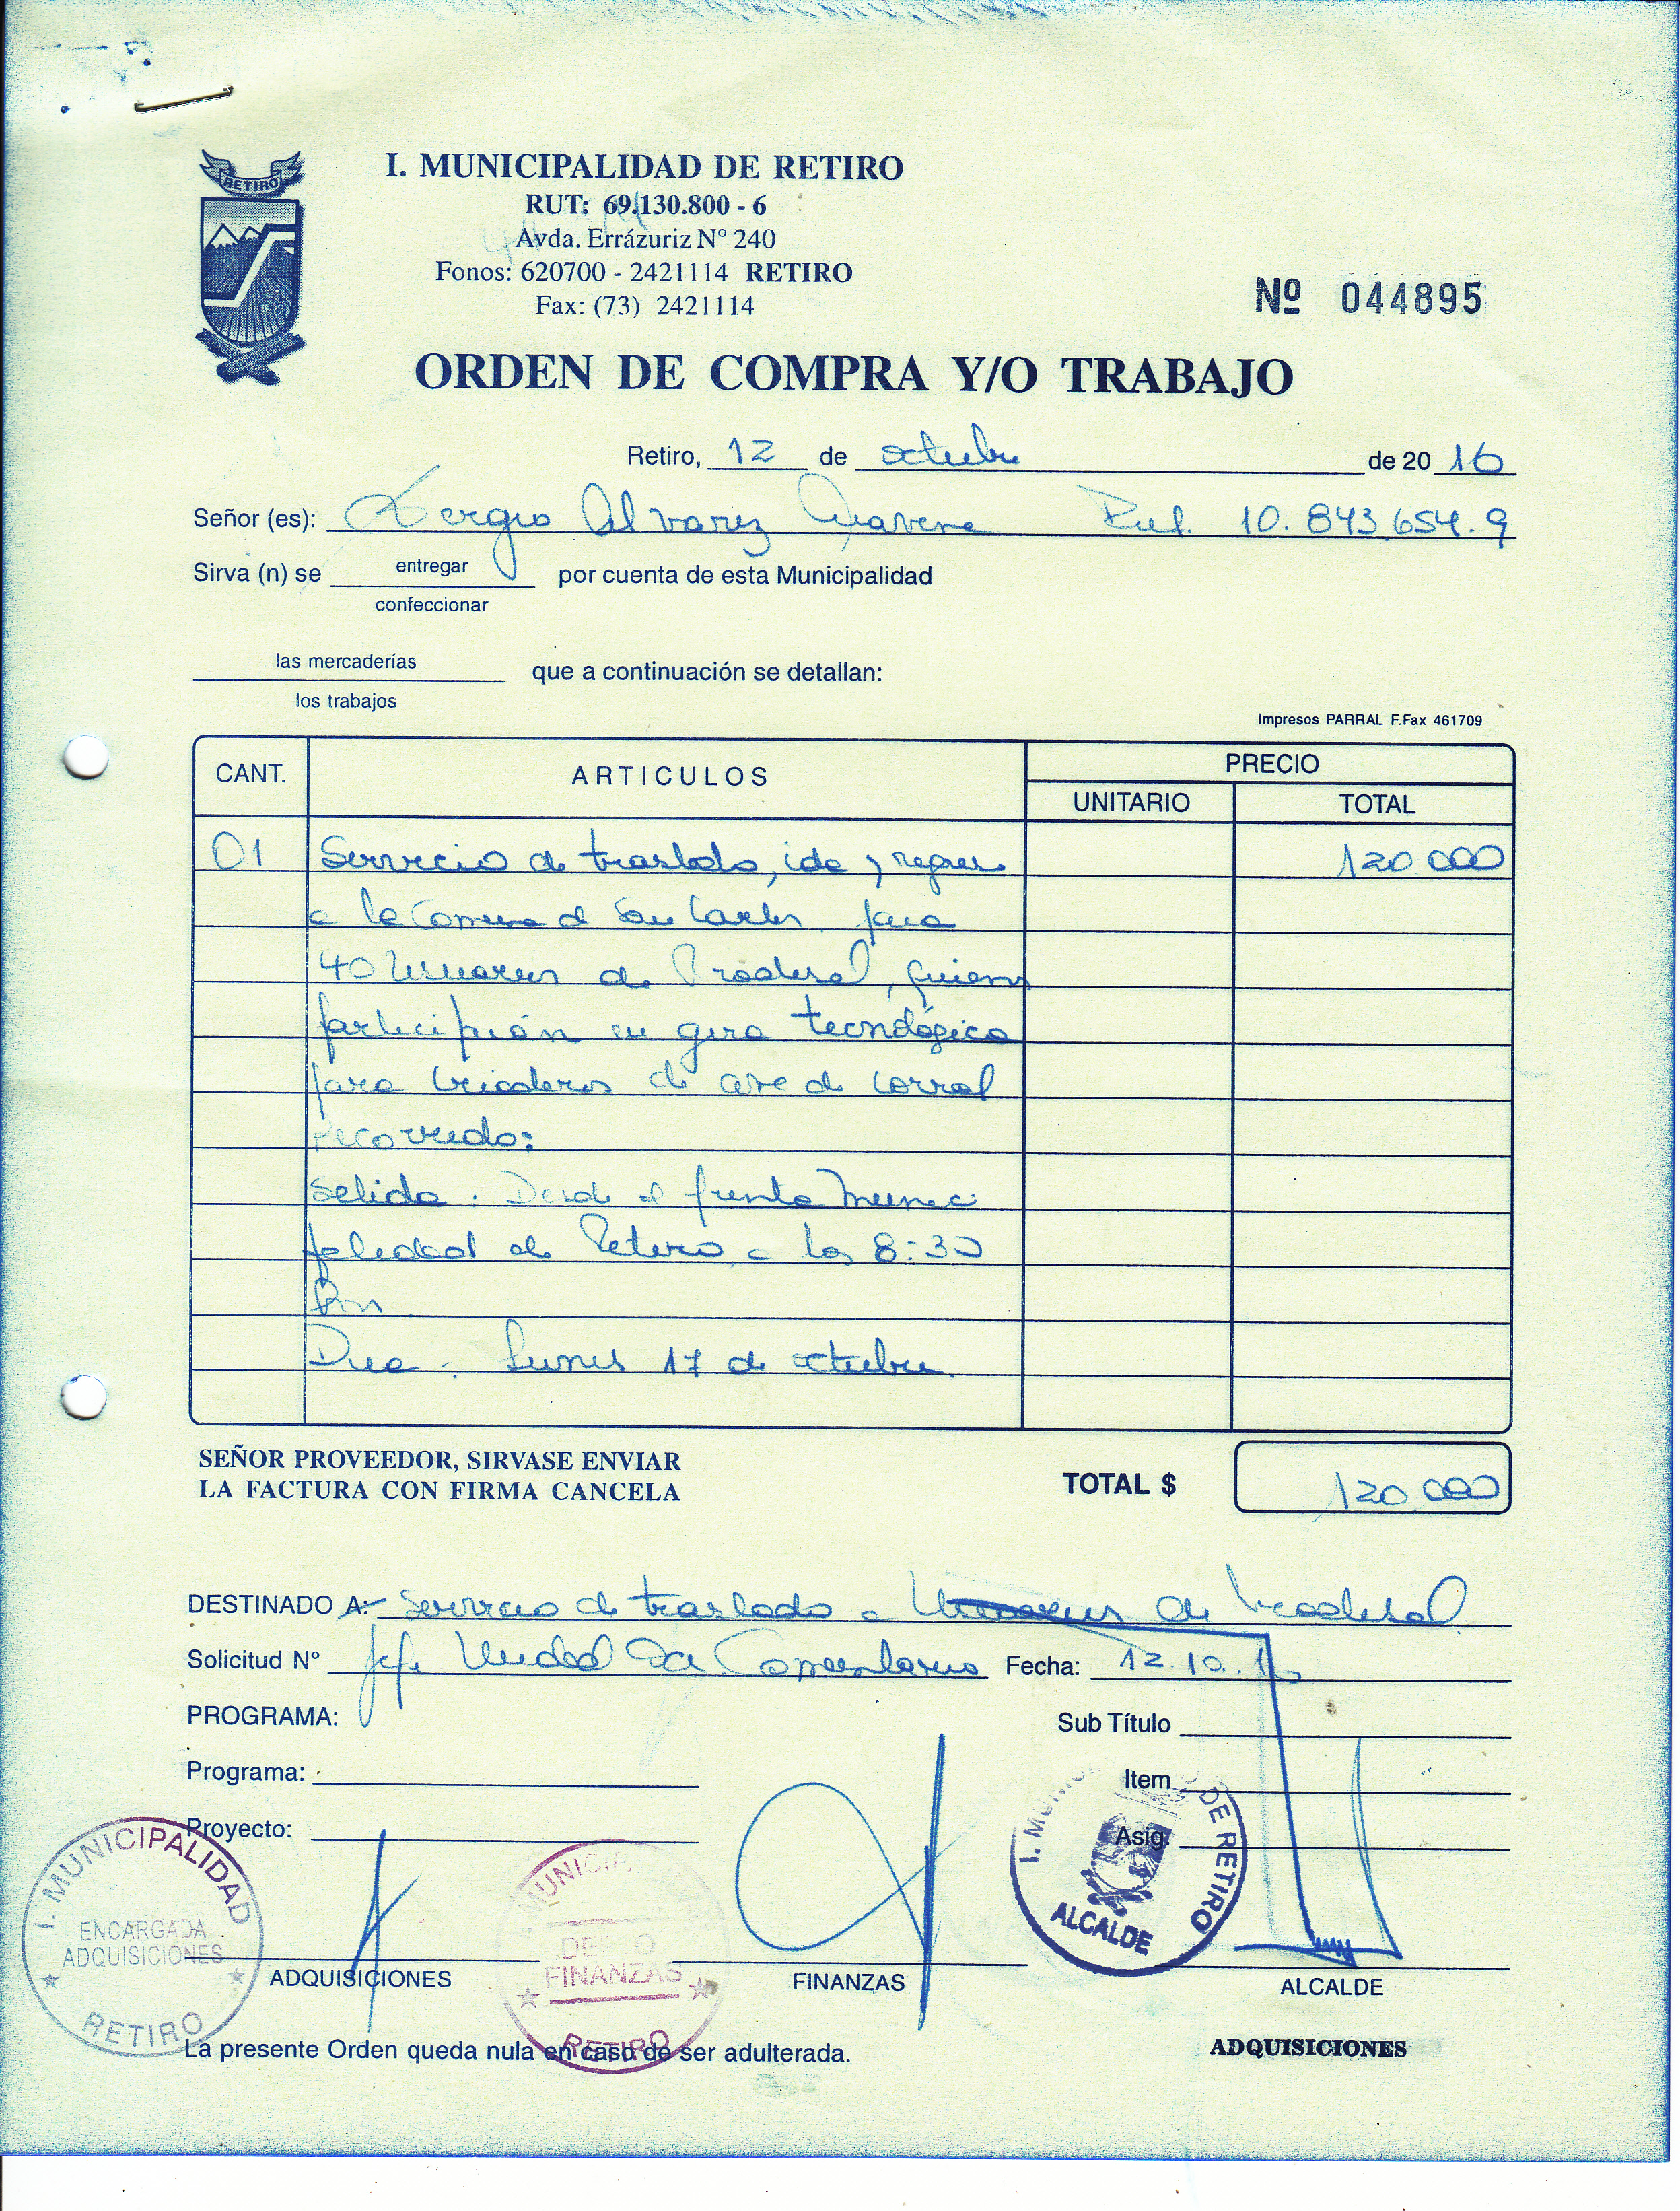 RETIRO
I. MUNICIPALIDAD DE RETIRO
RUT: 69.130.800 - 6
Avda. Errázuriz N° 240
Fonos: 620700 - 2421114 RETIRO
Fax: (73) 2421114
Nº 044895
ORDEN DE COMPRA Y/O TRABAJO
Retiro, 12 de octubre de 20 16
Señor (es): Sergio Alvarez Aravena Rut. 10.843.654.9
Sirva (n) se entregar por cuenta de esta Municipalidad
confeccionar
las mercaderías que a continuación se detallan:
los trabajos
Impresos PARRAL F.Fax 461709
CANT. ARTICULOS PRECIO
UNITARIO TOTAL
01 Servicio de traslado, ida y regreso 120.000
a la Comuna de San Carlos para
40 Usuarios de Prodesal, quienes
participarán en gira tecnológica
para criaderos de ave de corral
Recorrido:
Salida: Desde el frente Munici
palidad de Retiro a las 8:30
Dia: Lunes 17 de octubre.
SEÑOR PROVEEDOR, SIRVASE ENVIAR
LA FACTURA CON FIRMA CANCELA
TOTAL $ 120.000
DESTINADO A: Servicio de traslado a Usuarios de Prodesal
Solicitud N° Jefe Unidad Fecha: 12.10.16
PROGRAMA:
Sub Título
Programa:
Item
Proyecto:
Asig.
I. MUNICIPALIDAD
ENCARGADA
ADQUISICIONES
RETIRO
MUNICI
FINANZAS
RETIRO
I. MUNI DE RETIRO
ALCALDE
ADQUISICIONES FINANZAS ALCALDE
La presente Orden queda nula en caso de ser adulterada.
ADQUISICIONES